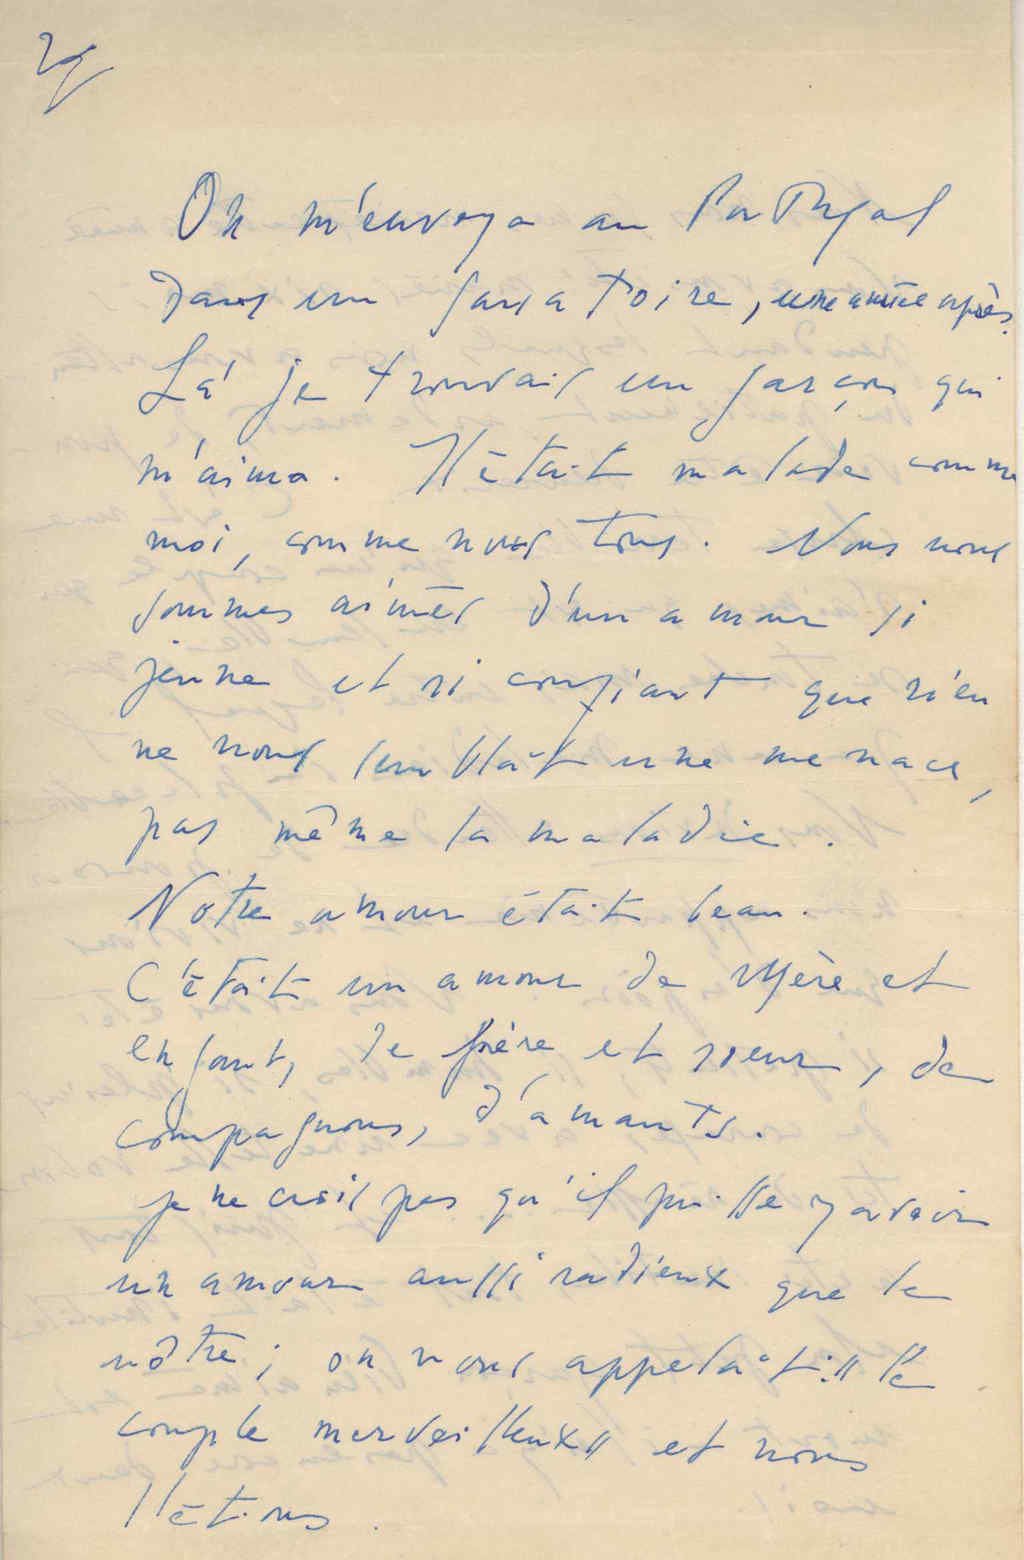 2/
On m'envoya au Portugal
dans un sanatoire, une année après.
Là je trouvais un garçon qui
m'aima. Il était malade comme
moi, comme nous tous. Nous nous
sommes aimés d'un amour si
jeune et si confiant que rien
ne nous semblait une menace,
pas même la maladie.
Notre amour était beau.
C'était un amour de Mère et
enfant, de frère et soeur, de
compagnons, d'amants.
je ne crois pas qu'il puisse y avoir
un amour aussi radieux que le
nôtre ; on nous appelait : "le
couple merveilleux" et nous
l'étions.